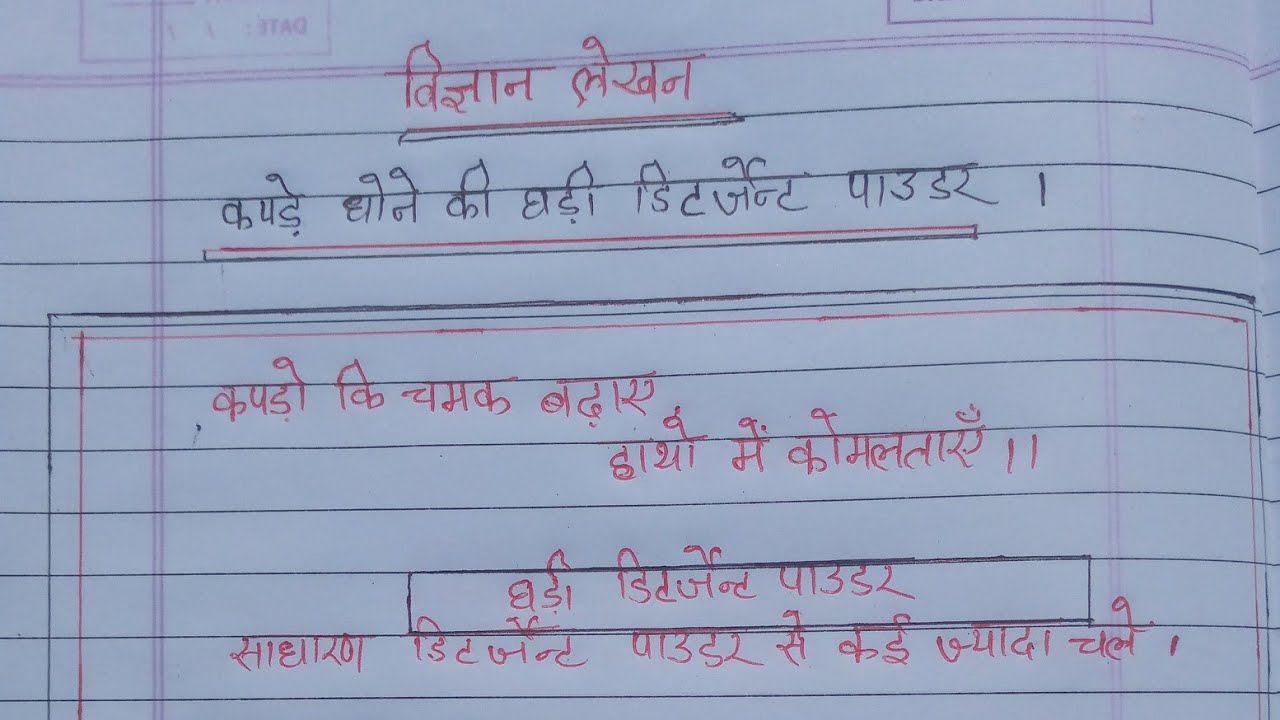 DATE: / /
विज्ञान लेखन
कपड़े धोने की घड़ी डिटर्जेन्ट पाउडर ।
कपड़ो कि चमक बढ़ाए
हाथो में कोमलताएँ ।।
घड़ी डिटर्जेन्ट पाउडर
साधारण डिटर्जेन्ट पाउडर से कई ज्यादा चले ।